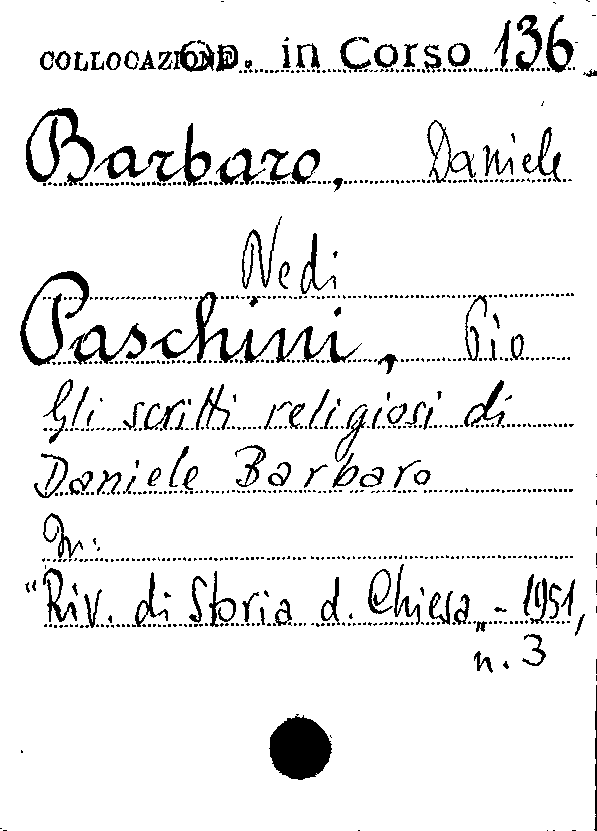 COLLOCAZIONE OD. in Corso 136
Barbaro, Daniele
Vedi
Paschini, Pio
Gli scritti religiosi di
Daniele Barbaro
In:
"Riv. di Storia d. Chiesa„ - 1951,
n. 3